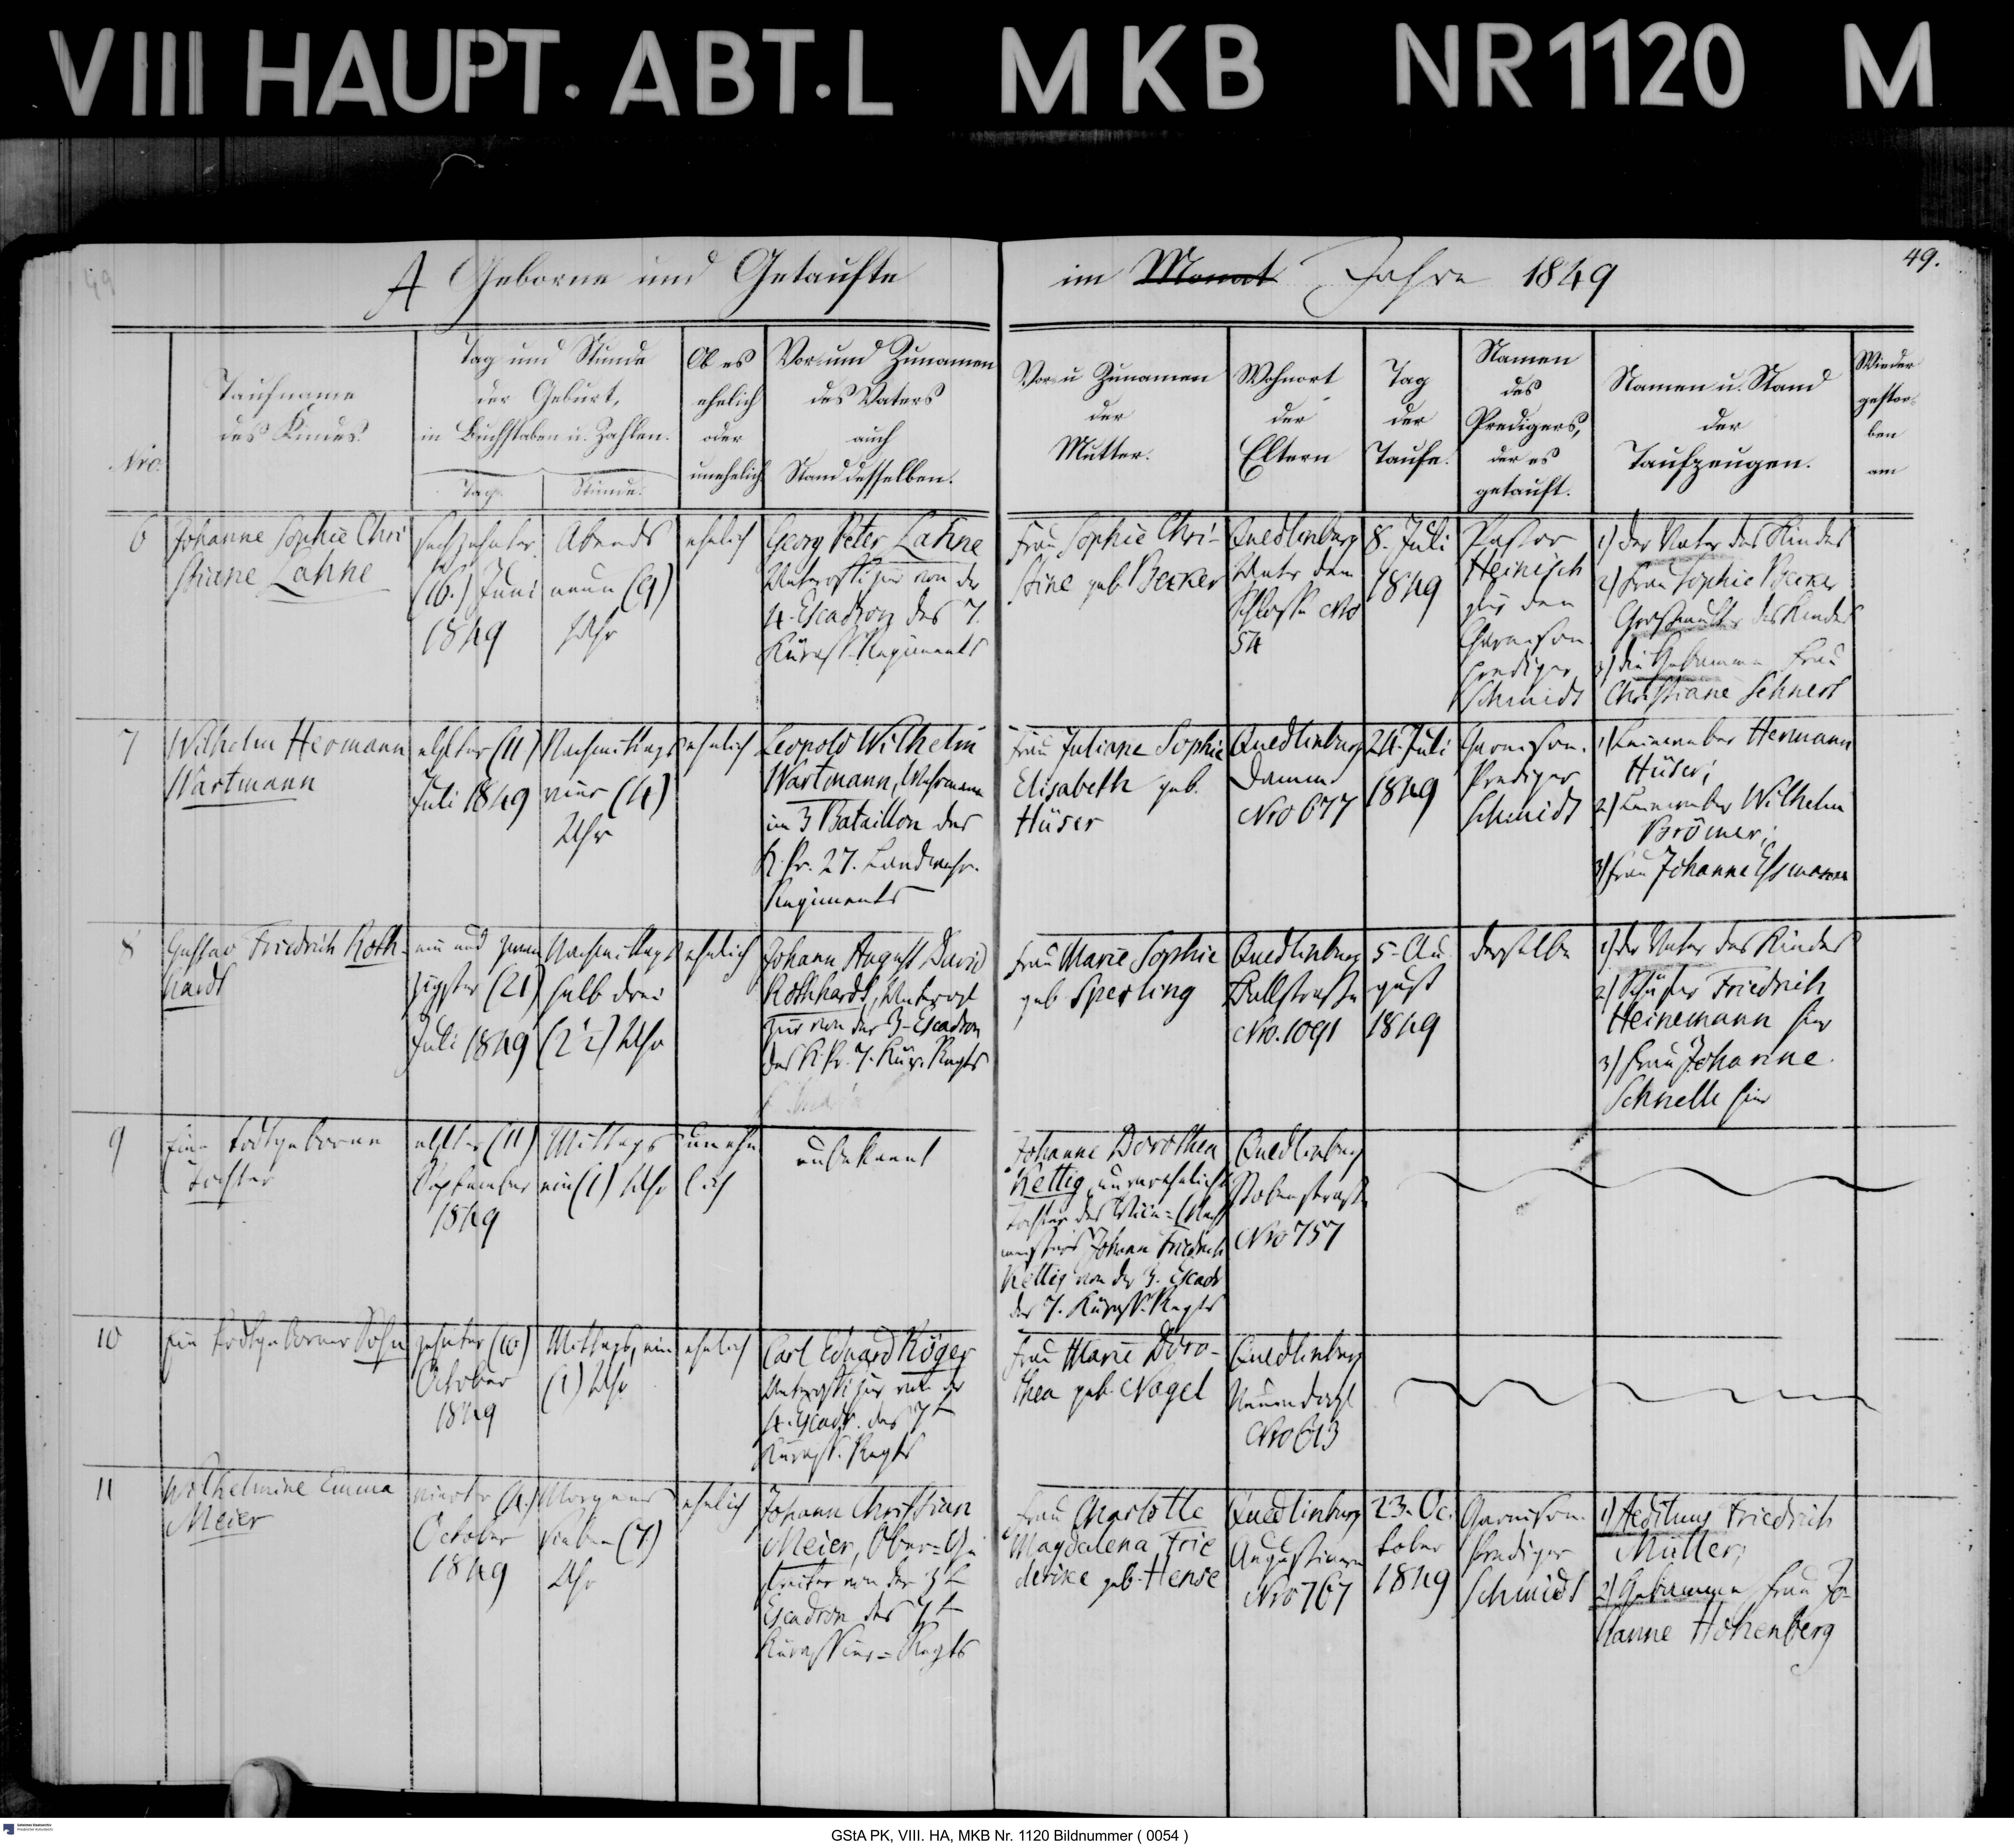 VIII HAUPT. ABT.L MKB NR 1120 M
49.
A Geborne und Getaufte im Monat Jahre 1849
Nro.
Taufname
des Kindes.
Tag und Stunde
der Geburt,
in Buchstaben u. Zahlen.
Tag.
Stunde.
Ob es
ehelich
oder
unehelich
Vor- und Zunamen
des Vaters
auch
Stand desselben.
Vor- u Zunamen
der
Mutter.
Wohnort
der
Eltern
Tag
der
Taufe.
Namen
des
Predigers,
der es
getauft.
Namen u. Stand
der
Taufzeugen.
Wieder
gestor-
ben
am
6
Johanne Sophie Chri
stiane Lahne
sechzehnter
(16.) Juni
1849
Abends
neun (9)
Uhr
ehelich
Georg Peter Lahne
Unteroffizier von der
4. Escadron des 7.
Kürass. Regiments
Frau Sophie Chri-
stine geb. Becker
Quedlinburg
Unter dem
Schlosse Nro
54
8. Juli
1849
Pastor
Heinisch
für den
Garnison
prediger
Schmidt
1) der Vater des Kindes
2) Frau Sophie Becker
Großmutter des Kindes
3) die Hebamme Frau
Christiane Sehnert
7
Wilhelm Hermann
Wartmann
elfter (11)
Juli 1849
Nachmittags
vier (4)
Uhr
ehelich
Leopold Wilhelm
Wartmann, Wehrmann
im 3 Bataillon des
K. Pr. 27. Landwehr-
Regiments
Frau Juliane Sophie
Elisabeth geb.
Hüser
Quedlinburg
Damm
Nro 677
24. Juli
1849
Garnison-
Prediger
Schmidt
1) Leineweber Hermann
Hüser;
2) Leineweber Wilhelm
Brömer;
3) Frau Johanne
8
Gustav Friedrich Roth-
hardt
ein und zwan
zigster (21)
Juli 1849
Nachmittags
halb drei
(2½) Uhr
ehelich
Johann August David
Rothhardt, Unteroffi
zier von der 3. Escadron
des K. Pr. 7. Kür. Regts
Frau Marie Sophie
geb Sperling
Quedlinburg
Ballstraße
Nro. 1091
5. Au
gust
1849
derselbe
1) der Vater des Kindes
2) Friedrich
Heinemann hier
3) Frau Johanne
Schnelle hier
9
Eine todtgeborne
Tochter
elfter (11)
September
1849
Mittags
ein (1) Uhr
unehe
lich
unbekannt
Johanne Dorothea
Rettig, unverehelichte
Tochter des Vice-Wacht
meisters Johann Friedrich
Rettig von der 3. Escadr
des 7. Kürass. Regts
Quedlinburg
Stobenstraße
Nro 757
10
Ein todtgeborner Sohn
zehnter (10)
October
1849
Mittags, ein
(1) Uhr
ehelich
Carl Eduard Röger
Unteroffizier von der
4. Escadr. des 7t
Kürass. Regts
Frau Marie Doro-
thea geb. Nagel
Quedlinburg
Neuendorf
Nro 613
11
Wilhelmine Emma
Meier
vierter (4.)
October
1849
Morgens
sieben (7)
Uhr
ehelich
Johann Christian
Meier, Ober-Ge
freiter von der 3t
Escadron des 7t
Kürassier-Regts
Frau Charlotte
Magdalena Frie
derike geb. Hense
Quedlinburg
Augustinern
Nro 767
23. Oc-
tober
1849
Garnison-
Prediger
Schmidt
1) Aedituus Friedrich
Müller;
2) Hebamme Frau Jo-
hanne Hohenberg
GStA PK, VIII. HA, MKB Nr. 1120 Bildnummer ( 0054 )